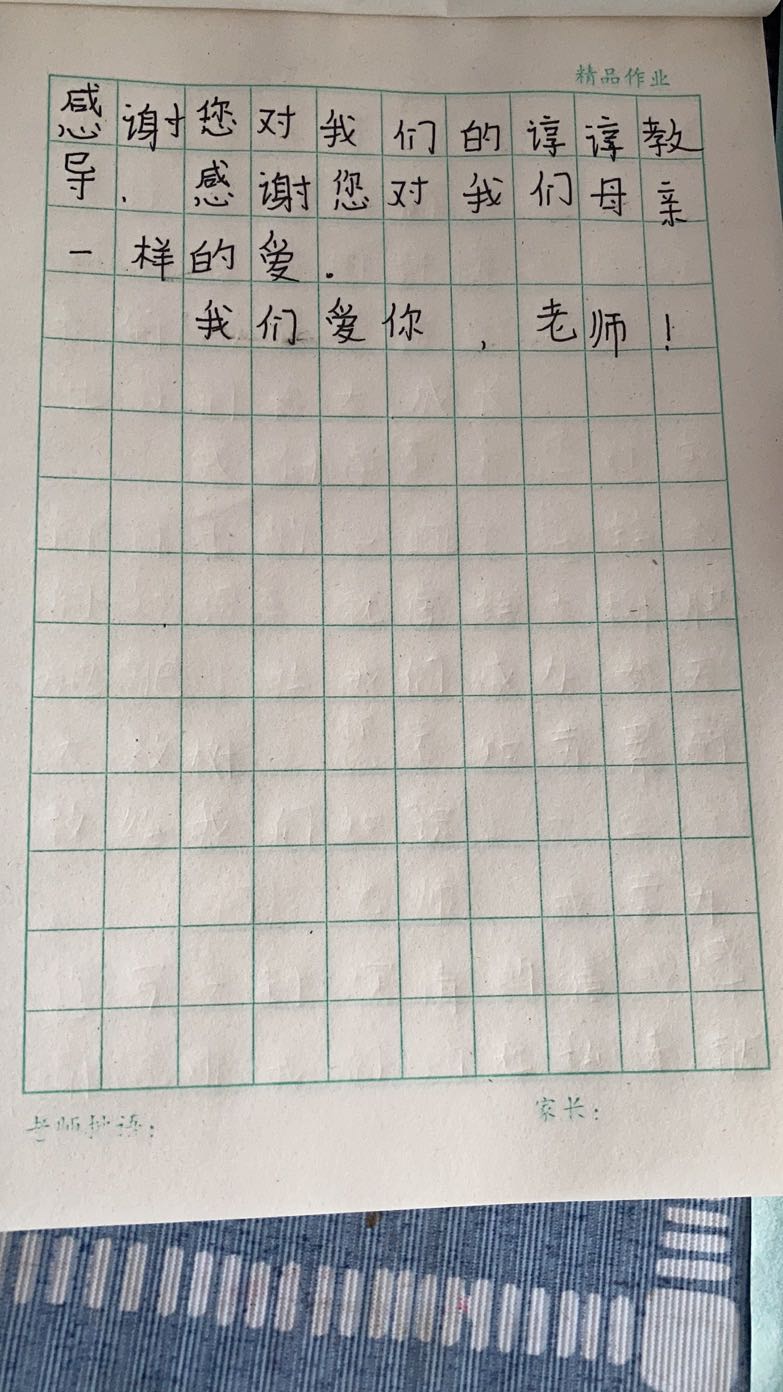 精品作业
感谢您对我们的谆谆教
导．感谢您对我们母亲
一样的爱．
我们爱你，老师！
家长：